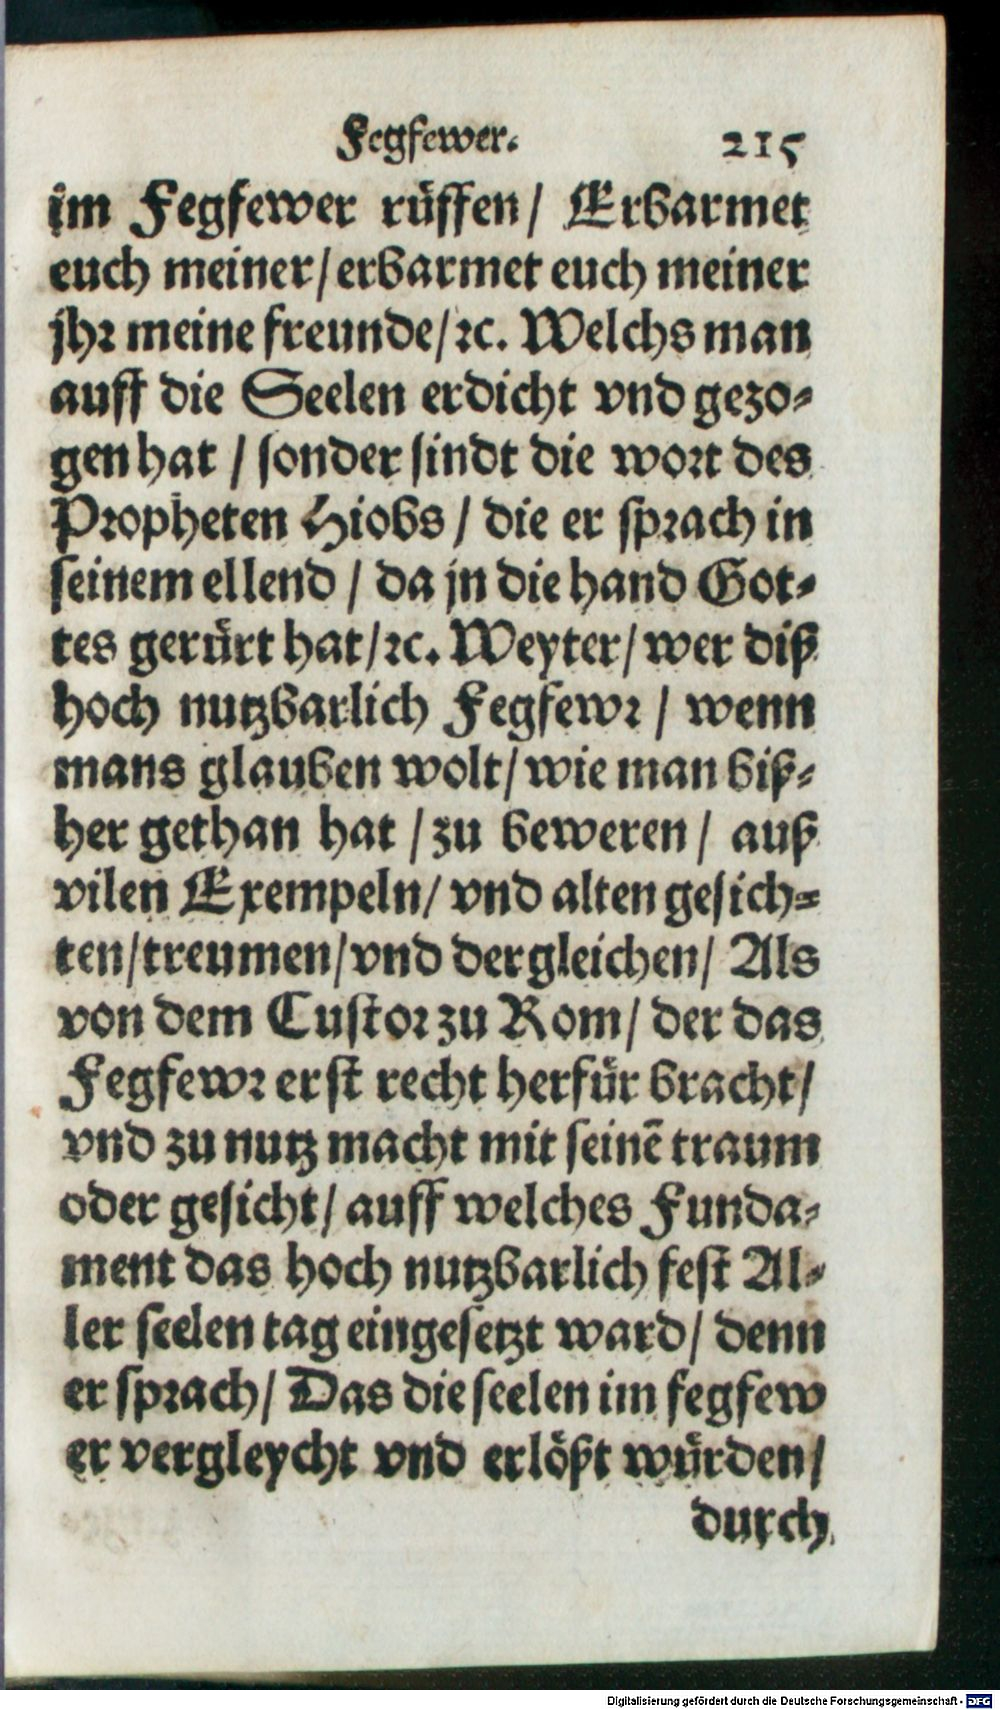 Fegfewer. 215
im Fegfewer rüffen/ Erbarmet
euch meiner/erbarmet euch meiner
jhr meine freunde/ꝛc. Welchs man
auff die Seelen erdicht vnd gezo-
gen hat / sonder sindt die wort des
Propheten Hiobs / die er sprach in
seinem ellend / da jn die hand Got-
tes gerürt hat/ꝛc. Weyter/ wer diß
hoch nutzbarlich Fegfewr / wenn
mans glauben wolt/ wie man biß-
her gethan hat / zu beweren / auß
vilen Exempeln/ vnd alten gesich-
ten/treumen/vnd dergleichen/ Als
von dem Custor zu Rom/ der das
Fegfewr erst recht herfür bracht/
vnd zu nutz macht mit seinē traum
oder gesicht/ auff welches Funda-
ment das hoch nutzbarlich fest Al-
ler seelen tag eingesetzt ward/ denn
er sprach/ Das die seelen im fegfew
er vergleycht vnd erlößt würden/
durch
Digitalisierung gefördert durch die Deutsche Forschungsgemeinschaft - DFG